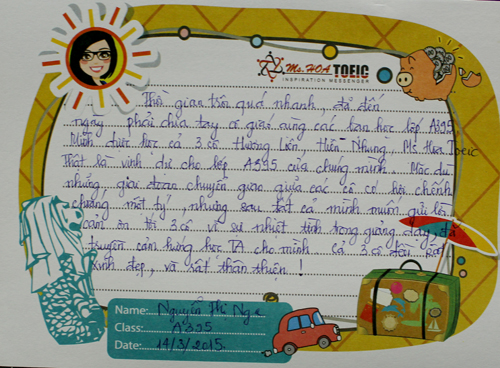 Ms.HOA TOEIC
INSPIRATION MESSENGER
Thời gian trôi quá nhanh, đã đến
ngày phải chia tay cô giáo cùng các bạn học lớp A395,
Mình được học cả 3 cô thương Liên, thiên Nhung, Ms Hoa Toeic
thật là vinh dự cho lớp A395 của chúng mình. Mặc dù
những giai đoạn chuyển giao giữa các cô có hơi chênh
chưng một tý, nhưng sau tất cả mình muốn gửi lời
cảm ơn tới 3 cô vì sự nhiệt tình trong giảng dạy, đã
truyền cảm hứng học TA cho mình cả 3 cô đều rất
xinh đẹp, và rất thân thiện !
Name: Nguyễn Thị Nga
Class: A395
Date: 14/3/2015.